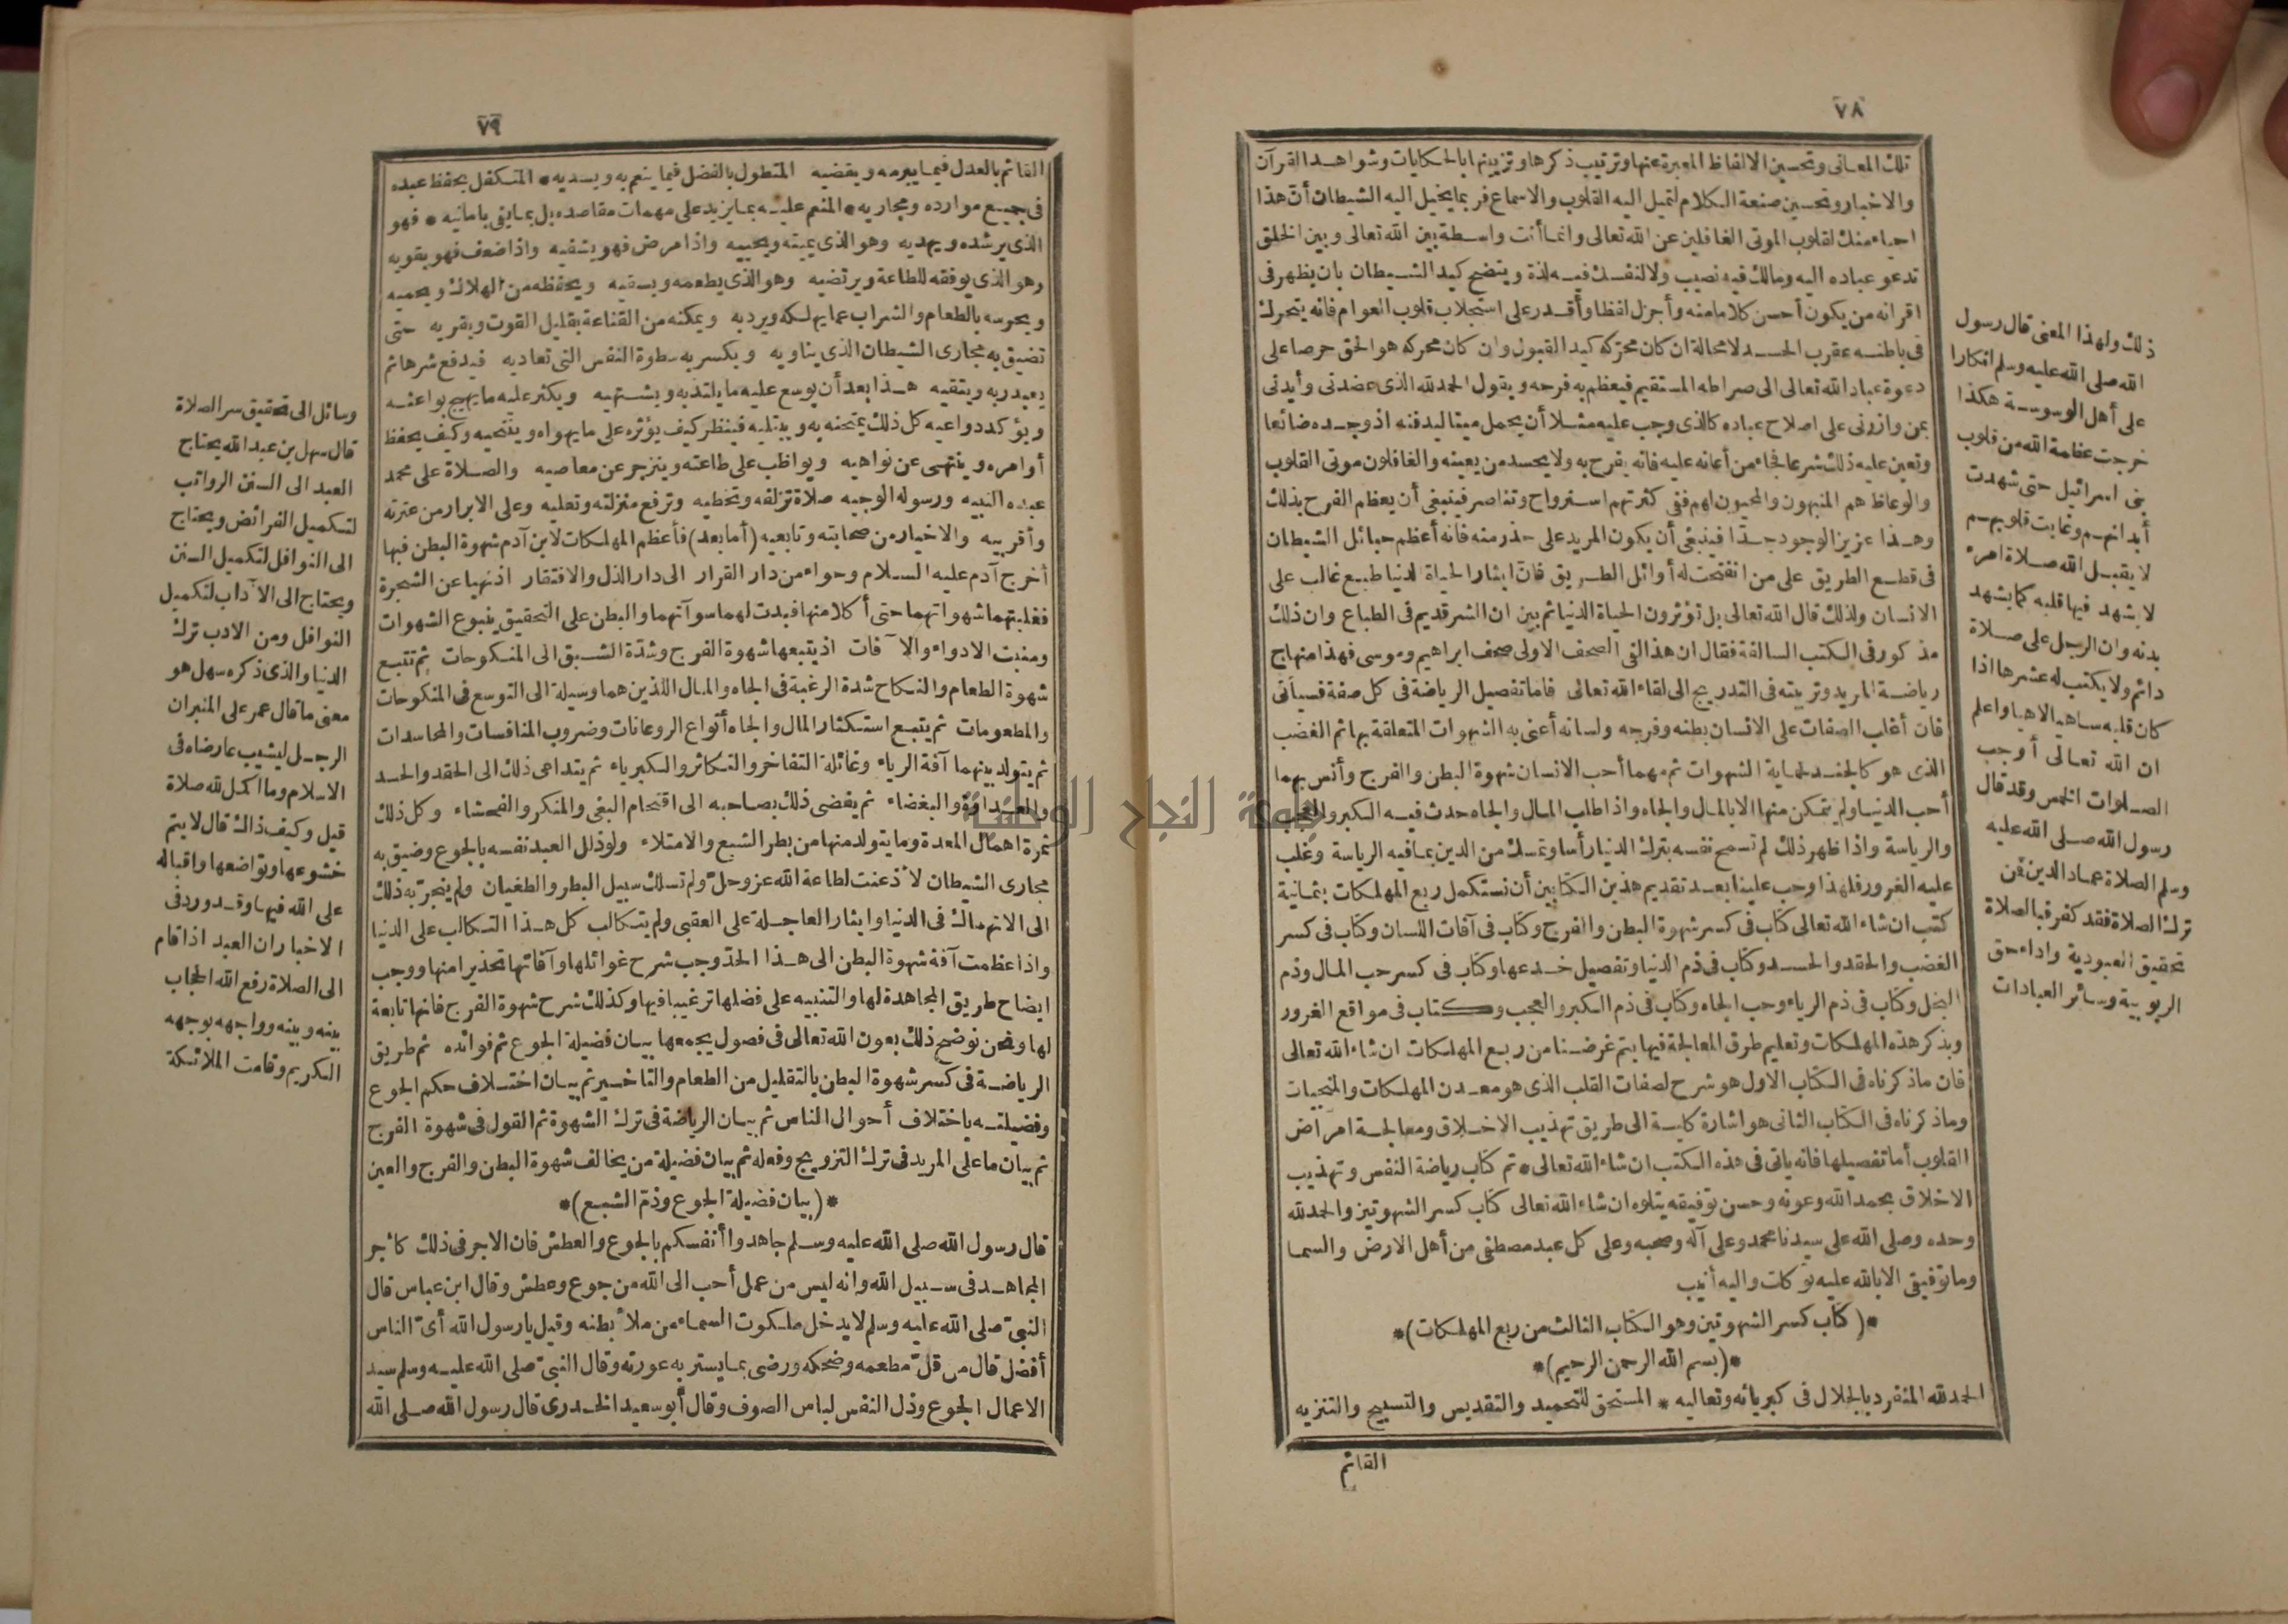 ٧٨
تلك المعانى وتحسين الالفاظ المعبرة عنها وترتيب ذكرها وتزيينها بالحكايات وشواهد القرآن
والاخبار وتحسين صنعة الكلام لتميل اليه القلوب والاسماع فربما يخيل اليه الشيطان أن هذا
احياء منك لقلوب الموتى الغافلين عن الله تعالى وانما أنت واسطة بين الله تعالى وبين الخلق
تدعو عباده اليه ومالك فيه نصيب ولا لنفسك فيه لذة ويتضح كيد الشيطان بان يظهر فى
اقرانه من يكون أحسن كلاما منه وأجزل لفظا وأقدر على استجلاب قلوب العوام فانه يتحرك
فى باطنه عقرب الحسد لا محالة ان كان محركه كيد القبول وان كان محركه هو الحق حرصا على
دعوة عباد الله تعالى الى صراطه المستقيم فيعظم به فرحه ويقول الحمد لله الذى عضدنى وأيدنى
بمن وازرنى على اصلاح عباده كالذى وجب عليه مثلا أن يحمل ميتا ليدفنه اذ وجده ضائعا
وتعين عليه ذلك شرعا فجاء من أعانه عليه فانه يفرح به ولا يحسد من يعينه والغافلون موتى القلوب
والوعاظ هم المنبهون والمحيون لهم ففى كثرتهم استرواح وتناصر فينبغى أن يعظم الفرح بذلك
وهذا عزيز الوجود جدا فينبغى أن يكون المريد على حذر منه فانه أعظم حبائل الشيطان
فى قطع الطريق على من انفتحت له أوائل الطريق فان ايثار الحياة الدنيا طبع غالب على
الانسان ولذلك قال الله تعالى بل تؤثرون الحياة الدنيا ثم بين ان الشر قديم فى الطباع وان ذلك
مذكور فى الكتب السالفة فقال ان هذا لفى الصحف الاولى صحف ابراهيم وموسى فهذا منهاج
رياضة المريد وتربيته فى التدريج الى لقاء الله تعالى فاما تفصيل الرياضة فى كل صفة فسيأتى
فان أغلب الصفات على الانسان بطنه وفرجه ولسانه أعنى به الشهوات المتعلقة بها ثم الغضب
الذى هو كالجند لحماية الشهوات ثم مهما أحب الانسان شهوة البطن والفرج وأنس بهما
أحب الدنيا ولم يتمكن منها الا بالمال والجاه واذا طلب المال والجاه حدث فيه الكبر والعجب
والرياسة واذا ظهر ذلك لم تسمح نفسه بترك الدنيا رأسا وتمسك من الدين بما فيه الرياسة وغلب
عليه الغرور فلهذا وجب علينا بعد تقديم هذين الكتابين أن نستكمل ربع المهلكات بثمانية
كتب ان شاء الله تعالى كتاب فى كسر شهوة البطن والفرج وكتاب فى آفات اللسان وكتاب فى كسر
الغضب والحقد والحسد وكتاب فى ذم الدنيا وتفصيل خدعها وكتاب فى كسر حب المال وذم
البخل وكتاب فى ذم الرياء وحب الجاه وكتاب فى ذم الكبر والعجب وكتاب فى مواقع الغرور
وبذكر هذه المهلكات وتعليم طرق المعالجة فيها يتم غرضنا من ربع المهلكات ان شاء الله تعالى
فان ماذكرناه فى الكتاب الاول هو شرح لصفات القلب الذى هو معدن المهلكات والمنجيات
وماذكرناه فى الكتاب الثانى هو اشارة كلية الى طريق تهذيب الاخلاق ومعالجة امراض
القلوب أما تفصيلها فانه يأتى فى هذه الكتب ان شاء الله تعالى * تم كتاب رياضة النفس وتهذيب
الاخلاق بحمد الله وعونه وحسن توفيقه يتلوه ان شاء الله تعالى كتاب كسر الشهوتين والحمد لله
وحده وصلى الله على سيدنا محمد وعلى آله وصحبه وعلى كل عبد مصطفى من أهل الارض والسما
وما توفيقى الا بالله عليه توكلت واليه أنيب
*(كتاب كسر الشهوتين وهو الكتاب الثالث من ربع المهلكات)*
*(بسم الله الرحمن الرحيم)*
الحمد لله المنفرد بالجلال فى كبريائه وتعاليه * المستحق للتحميد والتقديس والتسبيح والتنزيه
القائم
ذلك ولهذا المعنى قال رسول
الله صلى الله عليه وسلم انكارا
على أهل الوسوسة هكذا
خرجت عظمة الله من قلوب
بنى اسرائيل حتى شهدت
أبدانهم وغابت قلوبهم
لا يقبل الله صلاة امرئ
لا يشهد فيها قلبه كما يشهد
بدنه وان الرجل على صلاة
دائم ولا يكتب له عشرها اذا
كان قلبه ساهيا لاهيا واعلم
ان الله تعالى أوجب
الصلوات الخمس وقد قال
رسول الله صلى الله عليه
وسلم الصلاة عماد الدين فمن
ترك الصلاة فقد كفر فبالصلاة
تحقيق العبودية واداء حق
الربوبية وسائر العبادات
٧٩
القائم بالعدل فيما يبرمه ويقضيه المتطول بالفضل فيما ينعم به ويسديه * المتكفل بحفظ عبده
فى جميع موارده ومجاريه * المنعم عليه بما يزيد على مهمات مقاصده بل بما يفى بامانيه * فهو
الذى يرشده ويهديه وهو الذى يميته ويحييه واذا مرض فهو يشفيه واذا ضعف فهو يقويه
وهو الذى يوفقه للطاعة ويرتضيه وهو الذى يطعمه ويسقيه ويحفظه من الهلاك ويحميه
ويحرسه بالطعام والشراب عما يهلكه ويرديه ويمكنه من القناعة بقليل القوت ويقربه حتى
تضيق به مجارى الشيطان الذى يناويه ويكسر به سطوة النفس التى تعاديه فيدفع شرها ثم
يعبد ربه ويتقيه هذا بعد أن يوسع عليه ما يلتذ به ويشتهيه ويكثر عليه ما يهيج بواعثه
ويؤكد دواعيه كل ذلك يمتحنه به ويبتليه فينظر كيف يؤثره على ما يهواه وينتحيه وكيف يحفظ
أوامره وينتهى عن نواهيه ويواظب على طاعته وينزجر عن معاصيه والصلاة على محمد
عبده النبيه ورسوله الوجيه صلاة تزلفه وتحظيه وترفع منزلته وتعليه وعلى الابرار من عترته
وأقربيه والاخيار من صحابته وتابعيه (أما بعد) فأعظم المهلكات لابن آدم شهوة البطن فبها
أخرج آدم عليه السلام وحواء من دار القرار الى دار الذل والافتقار اذ نهيا عن الشجرة
فغلبتهما شهواتهما حتى أكلا منها فبدت لهما سوآتهما والبطن على التحقيق ينبوع الشهوات
ومنبت الادواء والآفات اذ يتبعها شهوة الفرج وشدة الشبق الى المنكوحات ثم تتبع
شهوة الطعام والنكاح شدة الرغبة فى الجاه والمال اللذين هما وسيلة الى التوسع فى المنكوحات
والمطعومات ثم يتبع استكثار المال والجاه أنواع الرعونات وضروب المنافسات والمحاسدات
ثم يتولد بينهما آفة الرياء وغائلة التفاخر والتكاثر والكبرياء ثم يتداعى ذلك الى الحقد والحسد
والعداوة والبغضاء ثم يفضى ذلك بصاحبه الى اقتحام البغى والمنكر والفحشاء وكل ذلك
ثمرة اهمال المعدة وما يتولد منها من بطر الشبع والامتلاء ولو ذلل العبد نفسه بالجوع وضيق به
مجارى الشيطان لأذعنت لطاعة الله عز وجل ولم تسلك سبيل البطر والطغيان ولم ينجر به ذلك
الى الانهماك فى الدنيا وايثار العاجلة على العقبى ولم يتكالب كل هذا التكالب على الدنيا
واذا عظمت آفة شهوة البطن الى هذا الحد وجب شرح غوائلها وآفاتها تحذيرا منها ووجب
ايضاح طريق المجاهدة لها والتنبيه على فضلها ترغيبا فيها وكذلك شرح شهوة الفرج فانها تابعة
لها ونحن نوضح ذلك بعون الله تعالى فى فصول يجمعها بيان فضيلة الجوع ثم فوائده ثم طريق
الرياضة فى كسر شهوة البطن بالتقليل من الطعام والتأخير ثم بيان اختلاف حكم الجوع
وفضيلته باختلاف أحوال الناس ثم بيان الرياضة فى ترك الشهوة ثم القول فى شهوة الفرج
ثم بيان ما على المريد فى ترك التزويج وفعله ثم بيان فضيلة من يخالف شهوة البطن والفرج والعين
*(بيان فضيلة الجوع وذم الشبع)*
قال رسول الله صلى الله عليه وسلم جاهدوا أنفسكم بالجوع والعطش فان الاجر فى ذلك كأجر
المجاهد فى سبيل الله وانه ليس من عمل أحب الى الله من جوع وعطش وقال ابن عباس قال
النبى صلى الله عليه وسلم لا يدخل ملكوت السماء من ملأ بطنه وقيل يا رسول الله أى الناس
أفضل قال من قل مطعمه وضحكه ورضى بما يستر به عورته وقال النبى صلى الله عليه وسلم سيد
الاعمال الجوع وذل النفس لباس الصوف وقال أبو سعيد الخدرى قال رسول الله صلى الله
وسائل الى تحقيق سر الصلاة
قال سهل بن عبد الله يحتاج
العبد الى السنن الرواتب
لتكميل الفرائض ويحتاج
الى النوافل لتكميل السنن
ويحتاج الى الآداب لتكميل
النوافل ومن الادب ترك
الدنيا والذى ذكره سهل هو
معنى ما قال عمر على المنبر ان
الرجل ليشيب عارضاه فى
الاسلام وما اكمل لله صلاة
قيل وكيف ذاك قال لا يتم
خشوعها وتواضعها واقباله
على الله فيها وقد ورد فى
الاخبار ان العبد اذا قام
الى الصلاة رفع الله الحجاب
بينه وبينه وواجهه بوجهه
الكريم وقامت الملائكة
جامعة النجاح الوطنية